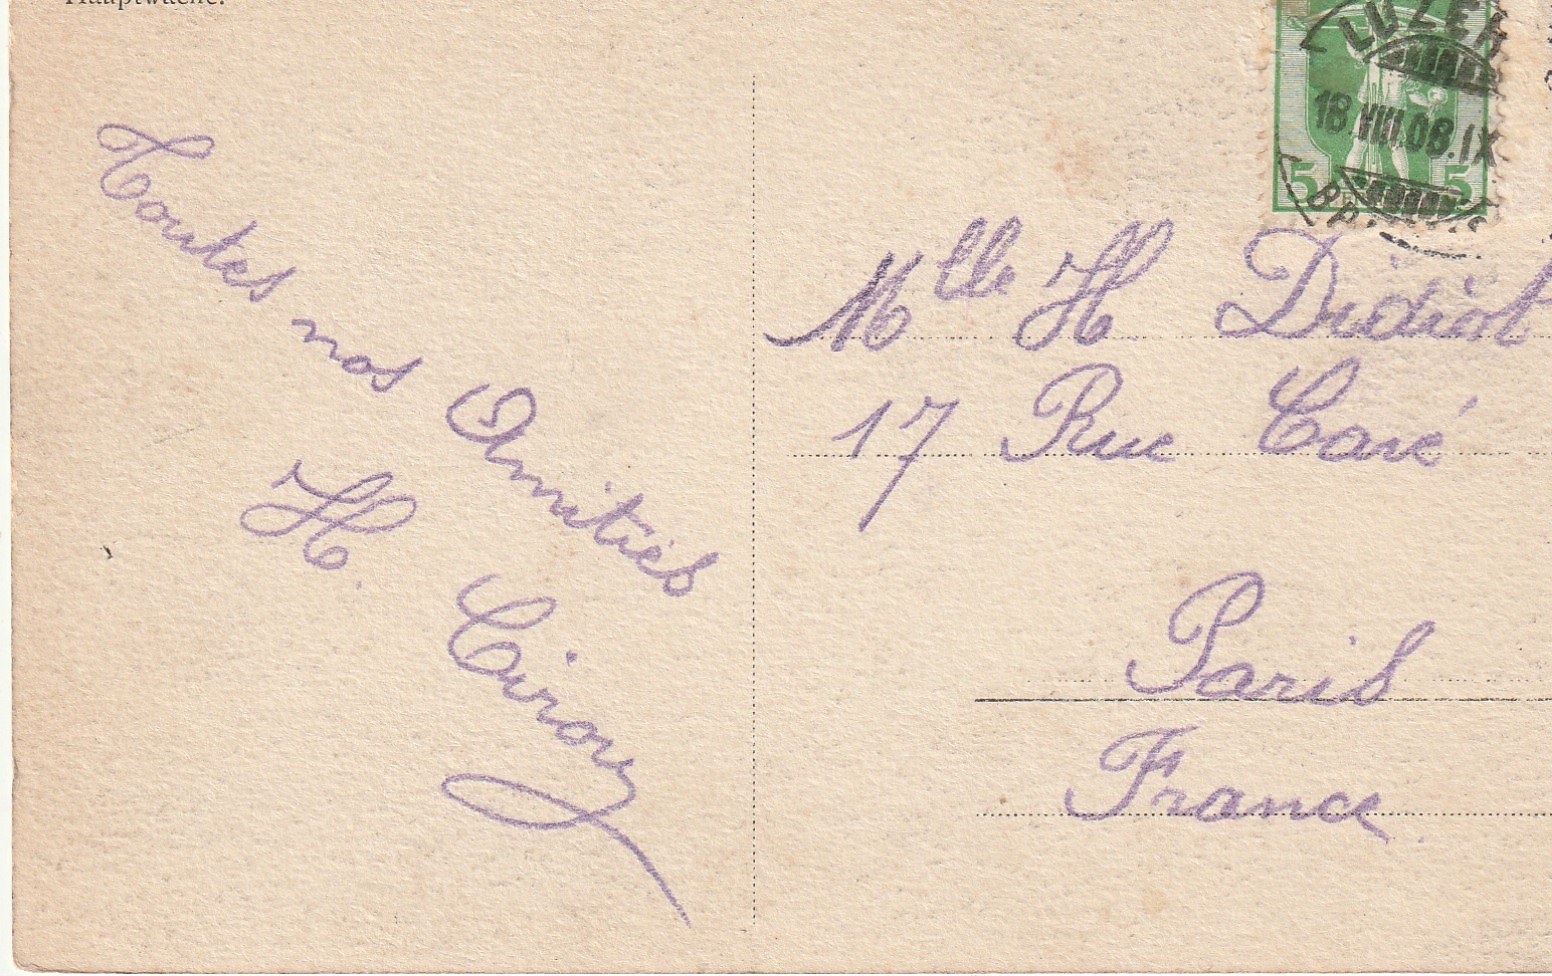 Hauptwache.
Toutes nos Amitiés
H.
LUZER
18.VIII.08.IX
5 5
Mlle H Didiot
17 Rue Cavé
Paris
France